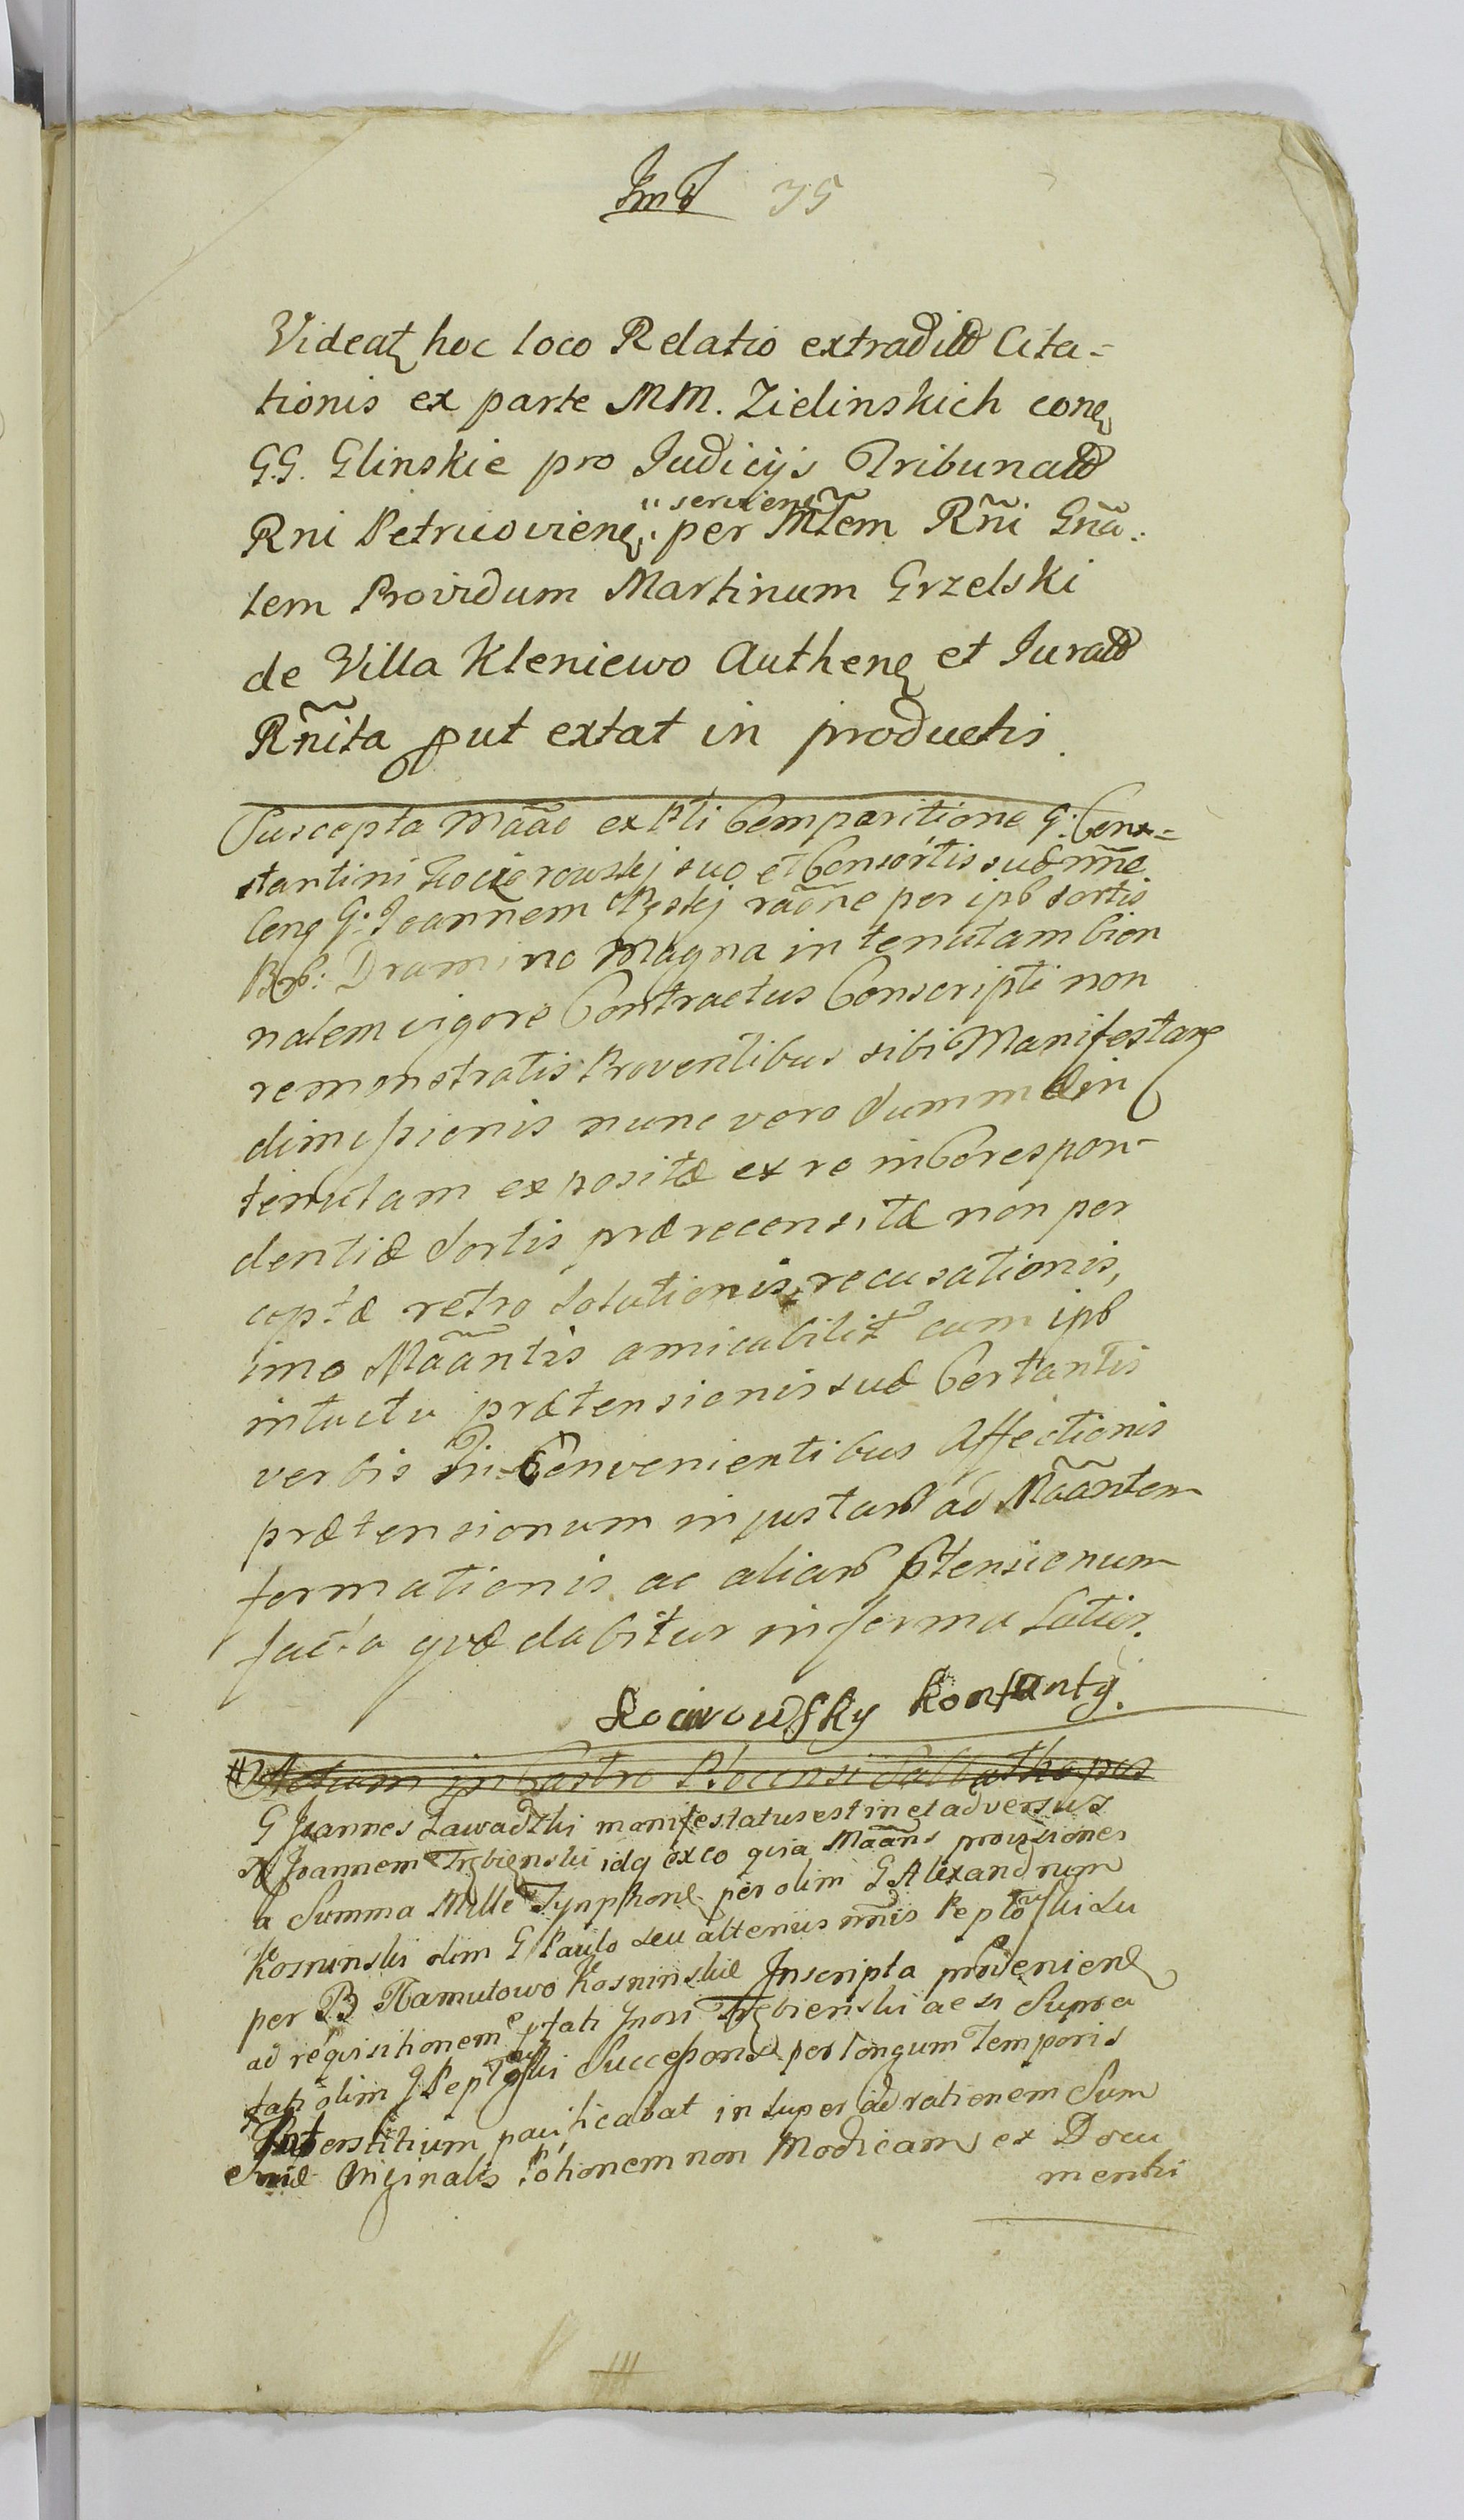 35
Videat hoc loco Relatio extradit Cita-
tionis ex parte MM. Zielinskich con
G.G. Glinskie pro Judicijs Tribunal
Rni Petricovien " servien per Mlem Rñi Gña:
lem Providum Martinum Grzelski
de Villa Kleniewo Authen et Jurat
Rñita put extat in productis
Suscepta Mãae ex Pti Comparitione G: Cons=
stantini suo et Consortis suæ nñe
Con G: Joannem raõne per ips sortis
Bo: Dramino Magna in tenutam bien
nalem vigore Contractus Conscripti non
remonstratis Proventibus sibi Manifestan
dimissionis nunc vero Summæ in
tenutam expositæ ex re in Corespon-
dentiæ Sortis præ recensitæ non per
ceptæ retro Solutionis, recusationis,
imo Mãantis amicabilit cum ips
intuitu prætensionis suæ Certantis
verbis In Convenientibus Affectionis
prætensionum injustar ad Mãantem
formationis ac aliar ptensionum
facta quæ dabitur in forma Latior.
Konstanty.
Actum in Castro Plocensi Sabbatho pos
G Joannes Zawadzki manifestatus est in et adversus
Joannem Trzbienski idq ex eo quia Mãans provisiones
a Summa Mille Tynph per olim G Alexandrum
Kosminski olim G Paulo seu alterius nñis Peptoski du
per B Kosminskie Inscripta provenien
ad reqvisitionem ptati Jnon Trzbienski ac Supra
tati olim J Peptoski Successoris per longum Temporis
Interstitium pacificabat insuper ad rationem Sum
mæ Originalis ptionem non Modicam ex Docu
mentis